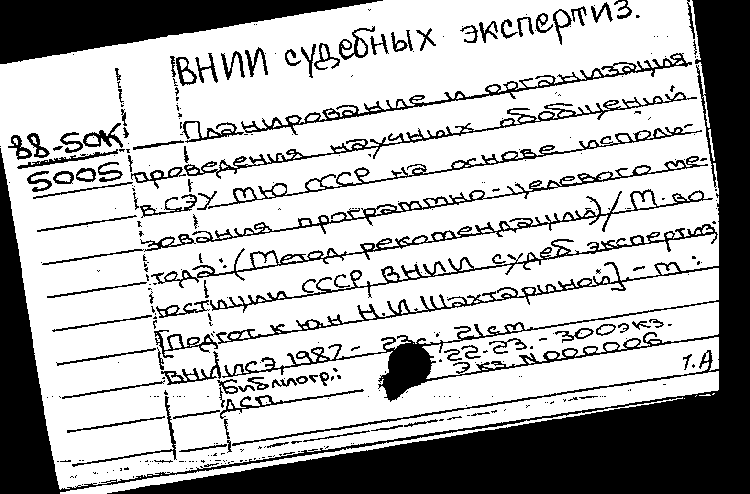 ВНИИ судебных экспертиз.
88-50К
5005
Планирование и организация
проведения научных обобщений
в СЭУ МЮ СССР на основе исполь-
зования программно-целевого ме-
тода: (Метод. рекомендации) / М. во
юстиции СССР, ВНИИ судеб. экспертиз;
[Подгот. к.ю.н. Н.И.Шахтариной] - М.:
ВНИИСЭ, 1987 - 23с; 21см.
Библиогр.: 22-23. - 300экз.
ДСП. Экз. N000006
Т.А